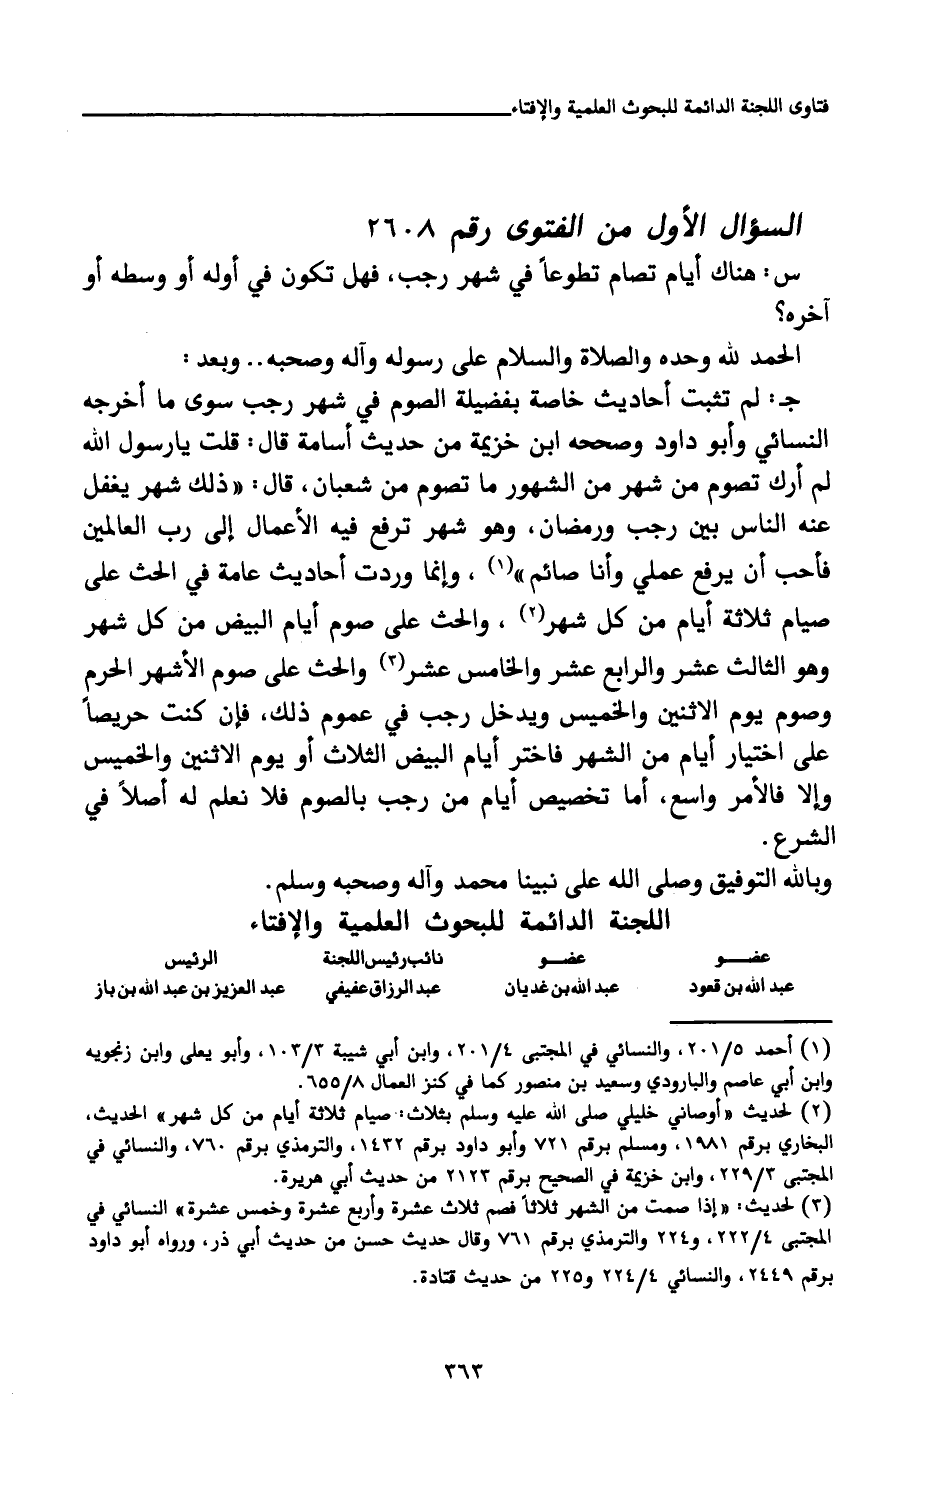 فتاوى اللجنة الدائمة للبحوث العلمية والإفتاء
السؤال الأول من الفتوى رقم ٢٦٠٨
س: هناك أيام تصام تطوعاً في شهر رجب، فهل تكون في أوله أو وسطه أو
آخره؟
الحمد لله وحده والصلاة والسلام على رسوله وآله وصحبه.. وبعد:
جـ: لم تثبت أحاديث خاصة بفضيلة الصوم في شهر رجب سوى ما أخرجه
النسائي وأبو داود وصححه ابن خزيمة من حديث أسامة قال: قلت يارسول الله
لم أرك تصوم من شهر من الشهور ما تصوم من شعبان، قال: «ذلك شهر يغفل
عنه الناس بين رجب ورمضان، وهو شهر ترفع فيه الأعمال إلى رب العالمين
فأحب أن يرفع عملي وأنا صائم»(١)، وإنما وردت أحاديث عامة في الحث على
صيام ثلاثة أيام من كل شهر(٢)، والحث على صوم أيام البيض من كل شهر
وهو الثالث عشر والرابع عشر والخامس عشر(٣) والحث على صوم الأشهر الحرم
وصوم يوم الاثنين والخميس ويدخل رجب في عموم ذلك، فإن كنت حريصاً
على اختيار أيام من الشهر فاختر أيام البيض الثلاث أو يوم الاثنين والخميس
وإلا فالأمر واسع، أما تخصيص أيام من رجب بالصوم فلا نعلم له أصلاً في
الشرع.
وبالله التوفيق وصلى الله على نبينا محمد وآله وصحبه وسلم.
اللجنة الدائمة للبحوث العلمية والإفتاء
عضـــو عضـــو نائب رئيس اللجنة الرئيس
عبد الله بن قعود عبد الله بن غديان عبد الرزاق عفيفي عبد العزيز بن عبد الله بن باز
(١) أحمد ٢٠١/٥، والنسائي في المجتبى ٢٠١/٤، وابن أبي شيبة ١٠٣/٣، وأبو يعلى وابن زنجويه
وابن أبي عاصم والبارودي وسعيد بن منصور كما في كنز العمال ٦٥٥/٨.
(٢) لحديث «أوصاني خليلي صلى الله عليه وسلم بثلاث: صيام ثلاثة أيام من كل شهر» الحديث،
البخاري برقم ١٩٨١، ومسلم برقم ٧٢١ وأبو داود برقم ١٤٣٢، والترمذي برقم ٧٦٠، والنسائي في
المجتبى ٢٢٩/٣، وابن خزيمة في الصحيح برقم ٢١٢٣ من حديث أبي هريرة.
(٣) لحديث: «إذا صمت من الشهر ثلاثاً فصم ثلاث عشرة وأربع عشرة وخمس عشرة» النسائي في
المجتبى ٢٢٢/٤، و٢٢٤ والترمذي برقم ٧٦١ وقال حديث حسن من حديث أبي ذر، ورواه أبو داود
برقم ٢٤٤٩، والنسائي ٢٢٤/٤ و٢٢٥ من حديث قتادة.
٣٦٣